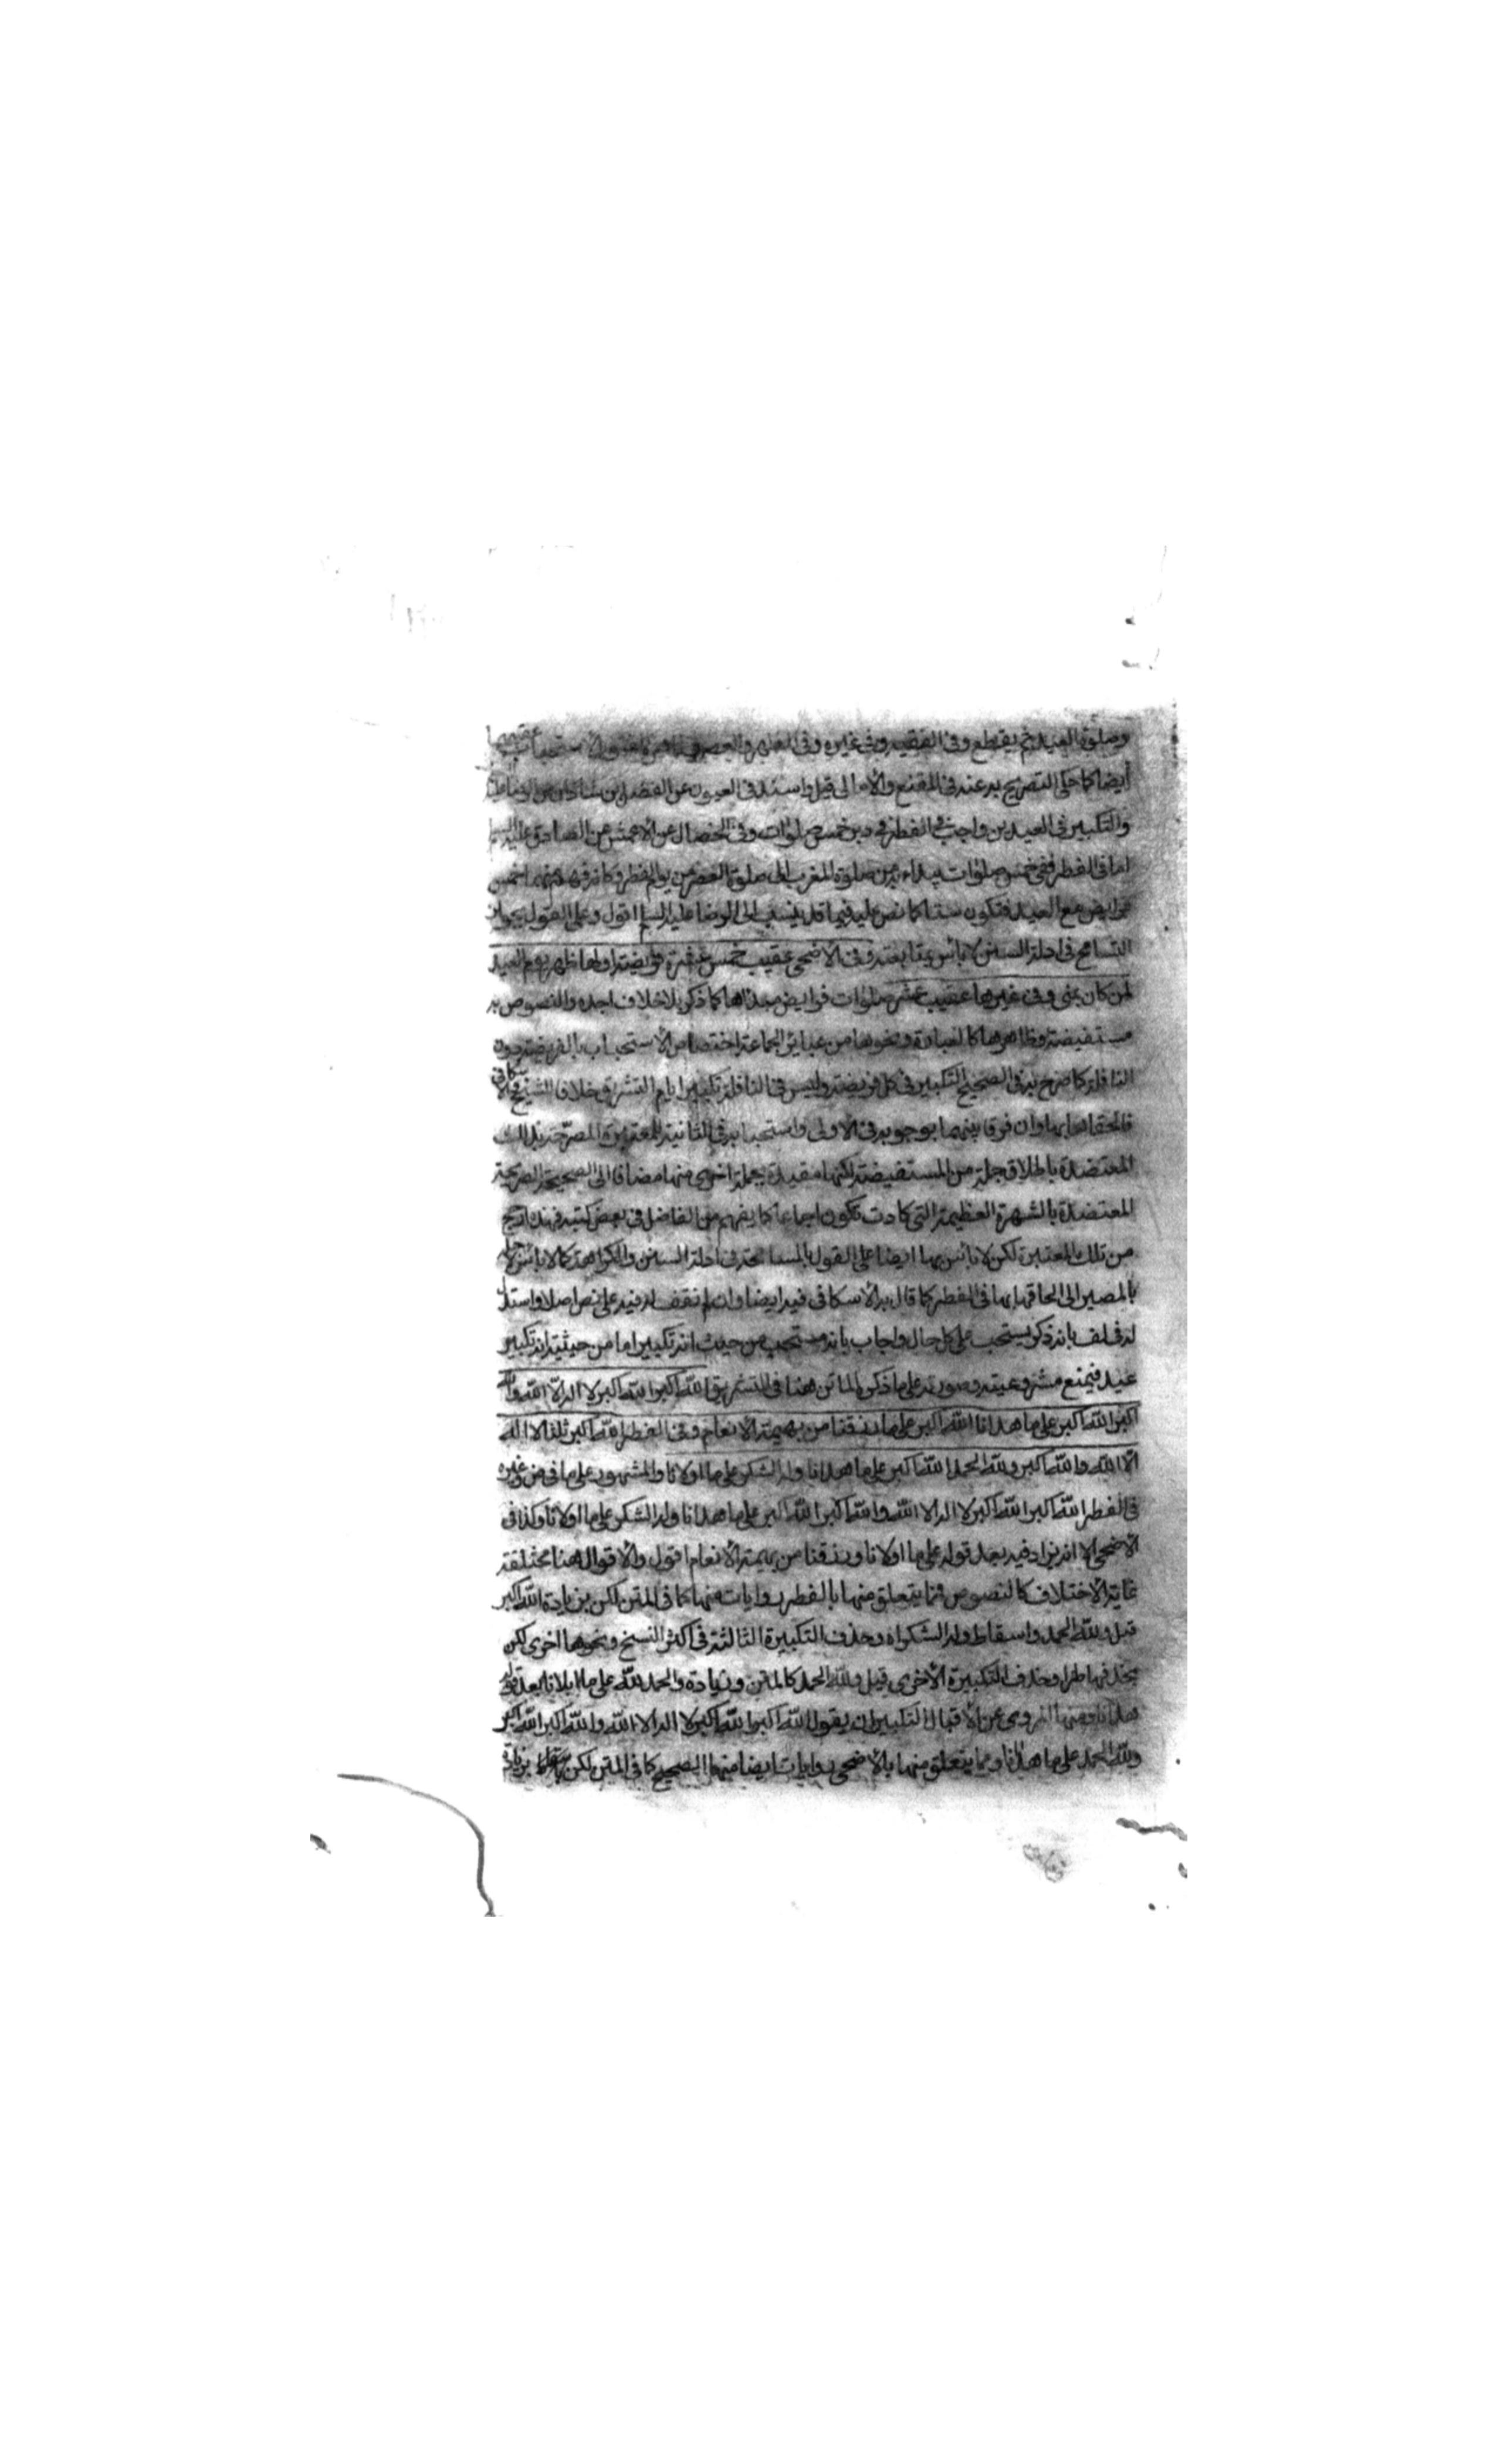 وصلوة العيد ثم يقطع وفى الفقيه وفى غيره وفى الظهر والعصر الاستحباب عقيبهما
أيضا كما حكى التصريح به عنه فى المقنع والأمالى قيل واسند فى العيون عن الفضل بن شاذان عن الرضا
والتكبير فى العيدين واجب فى الفطر فى دبر خمس صلوات وفى الخصال عن الأعمش عن الصادق عليه السلم
اما فى الفطر ففى خمس صلوات يبداء به من صلوة المغرب الى صلوة العصر من يوم الفطر وكانه فهم منهما خمس
فرايض مع العيد فتكون ستا كما نص عليه فيما قد ينسب الى الرضا عليه السلم اقول وعلى القول بجواز
التسامح فى ادلة السنن لا بأس بمتابعته وفى الاضحى عقيب خمس عشرة فريضة اولها ظهر يوم العيد
لمن كان بمنى وفى غيرها عقيب عشر صلوات فرايض مبداها كما ذكر بلا خلاف اجده والنصوص به
مستفيضة وظاهرها كالعبارة ونحوها من عباير الجماعة اختصاص الاستحباب بالفريضة دون
النافلة كما صرح به فى الصحيح التكبير فى كل فريضة وليس فى النافلة تكبير ايام التشريق خلافا للشيخ والاسكافى
فالحقاها بها وان فرقا بينهما بوجوبه فى الاولى واستحبابه فى الثانية للمعتبرة المصرحة بذلك
المعتضدة باطلاق جملة من المستفيضة لكنها مقيدة بجملة اخرى منها مضافا الى الصحيحة الصريحة
المعتضدة بالشهرة العظيمة التى كادت تكون اجماعا كما يفهم من الفاضل فى بعض كتبه فهذه ارجح
من تلك المعتبرة لكن لا بأس بها ايضا على القول بالمسامحة فى ادلة السنن والكراهة كما لا بأس جله
بالمصير الى الحاقها بها فى الفطر كما قال به الاسكافى فيه ايضا وان لم نقف له فيه على نص اصلا واستدل
له فى لف بانه ذكر يستحب على كل حال واجاب بانه مستحب من حيث انه تكبير اما من حيثية انه تكبير
عيد فيمنع مشروعيته وصورته على ما ذكره الماتن هنا فى التشريق الله اكبر الله اكبر لا اله الا الله والله
اكبر الله اكبر على ما هدانا الله اكبر على ما رزقنا من بهيمة الانعام وفى الفطر الله اكبر ثلثا لا اله
الا الله والله اكبر ولله الحمد الله اكبر على ما هدانا وله الشكر على ما اولانا والمشهور على ما فى ض وغيره
فى الفطر الله اكبر الله اكبر لا اله الا الله والله اكبر الله اكبر على ما هدانا وله الشكر على ما اولانا وكذا فى
الاضحى الا انه يزاد فيه بعد قوله على ما اولانا ورزقنا من بهيمة الانعام اقول والاقوال هنا مختلفة
غاية الاختلاف كالنصوص فما يتعلق منها بالفطر روايات منها كما فى المتن لكن بزيادة الله اكبر
قبل ولله الحمد واسقاط وله الشكر اه وحذف التكبيرة الثالثة فى اكثر النسخ ونحوها اخرى لكن
بحذفها طرا وحذف التكبيرة الأخرى قبل ولله الحمد كالمتن وزيادة والحمد لله على ما ابلانا بعد قوله
هدانا ومنها المروى عن الاقبال التكبير ان يقول الله اكبر الله اكبر لا اله الا الله والله اكبر الله اكبر
ولله الحمد على ما هدانا ومما يتعلق منها بالأضحى روايات ايضا منها الصحيح كما فى المتن لكن بزيادة